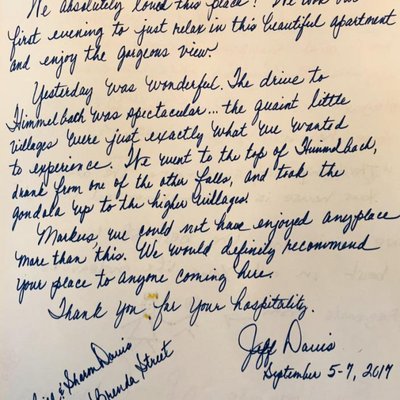 We absolutely loved this place! We took our
first evening to just relax in this beautiful apartment
and enjoy the gorgeous view.
Yesterday was wonderful. The drive to
Himmelbach was spectacular... the quaint little
villages were just exactly what we wanted
to experience. We went to the top of Himmelbach,
drank from one of the other falls, and took the
gondola up to the higher villages.
Markus, we could not have enjoyed anyplace
more than this. We would definitely recommend
your place to anyone coming here.
Thank you for your hospitality.
Jeff Davis
September 5-7, 2017
& Sharon Davis
Brenda Street